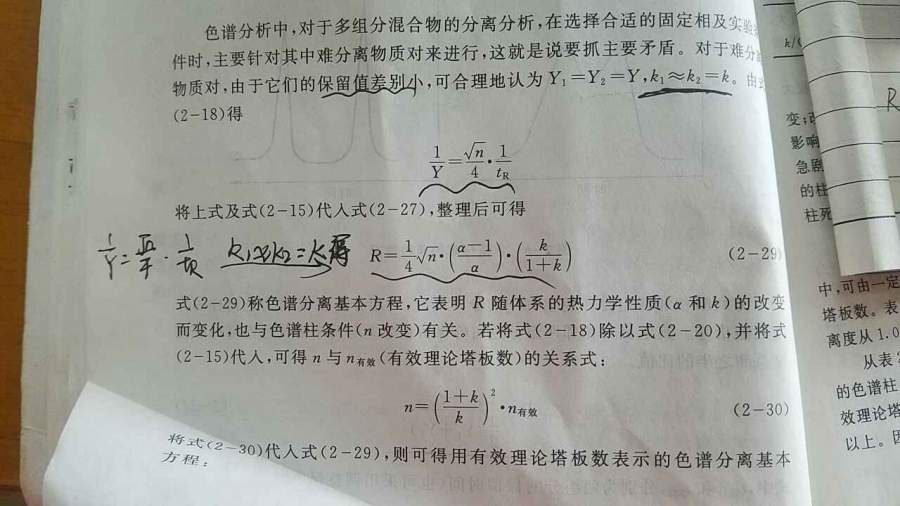 色谱分析中,对于多组分混合物的分离分析,在选择合适的固定相及实验
件时,主要针对其中难分离物质对来进行,这就是说要抓主要矛盾。对于难分
物质对,由于它们的保留值差别小,可合理地认为 Y₁=Y₂=Y,k₁≈k₂=k。由式
(2-18)得
1/Y=√n/4·1/tR
将上式及式(2-15)代入式(2-27),整理后可得
1/Y=√n/4·1/tR k₁≈k₂=k得
R=1/4√n·(α-1/α)·(k/1+k) (2-29)
式(2-29)称色谱分离基本方程,它表明 R 随体系的热力学性质(α 和 k)的改变
而变化,也与色谱柱条件(n 改变)有关。若将式(2-18)除以式(2-20),并将式
(2-15)代入,可得 n 与 n有效(有效理论塔板数)的关系式:
n=(1+k/k)²·n有效 (2-30)
将式(2-30)代入式(2-29),则可得用有效理论塔板数表示的色谱分离基本
方程:
k/
R
变;
影响
急剧
的柱
柱死
中,可由一定
塔板数。表
离度从 1.0
从表
的色谱柱
效理论塔
以上。因